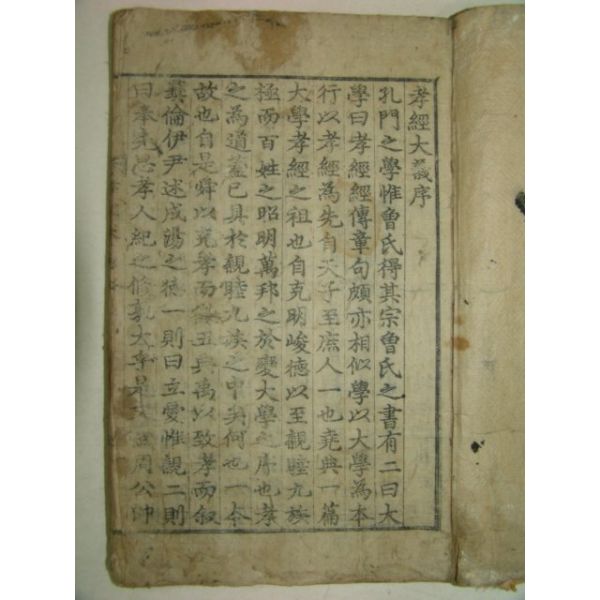 孝經大義序
孔門之學惟曾氏得其宗曾氏之書有二曰大
學曰孝經經傳章句頗亦相似學以大學為本
行以孝經為先自天子至庶人一也堯典一篇
大學孝經之祖也自克明峻德以至親睦九族
極而百姓之昭明萬邦之於變大學之序也孝
之為道蓋已具於親睦九族之中矣何也一本
故也自是舜以克孝而徽五典禹以致孝而叙
彝倫伊尹述成湯之德一則曰立愛惟親二則
曰奉先思孝人紀之修孰大乎是文武周公帥